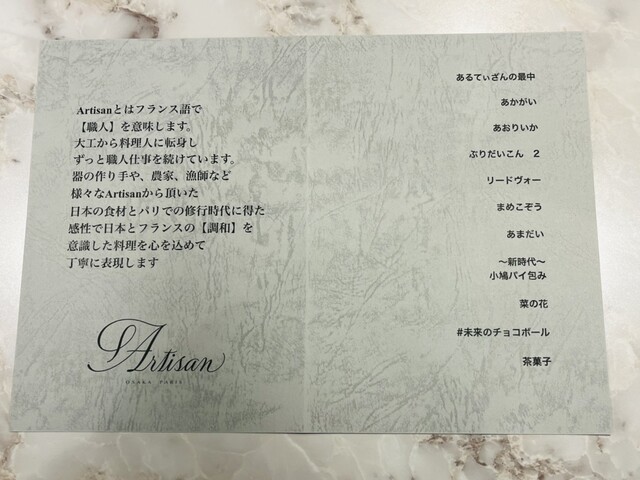 Artisanとはフランス語で
【職人】を意味します。
大工から料理人に転身し
ずっと職人仕事を続けています。
器の作り手や、農家、漁師など
様々なArtisanから頂いた
日本の食材とパリでの修行時代に得た
感性で日本とフランスの【調和】を
意識した料理を心を込めて
丁寧に表現します
Artisan
OSAKA PARIS
あるてぃざんの最中
あかがい
あおりいか
ぶりだいこん 2
リードヴォー
まめこぞう
あまだい
～新時代～
小鳩パイ包み
菜の花
#未来のチョコボール
茶菓子